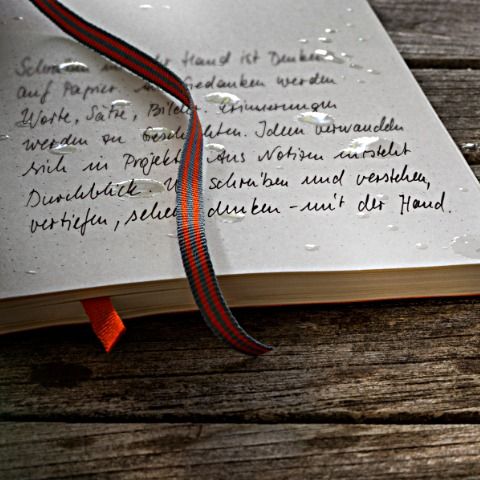 Schreiben mit der Hand ist Denken
auf Papier. Aus Gedanken werden
Worte, Sätze, Bilder. Erinnerungen
werden zu Geschichten. Ideen verwandeln
sich in Projekte. Aus Notizen entsteht
Durchblick. Wir schreiben und verstehen,
vertiefen, sehen, denken - mit der Hand.